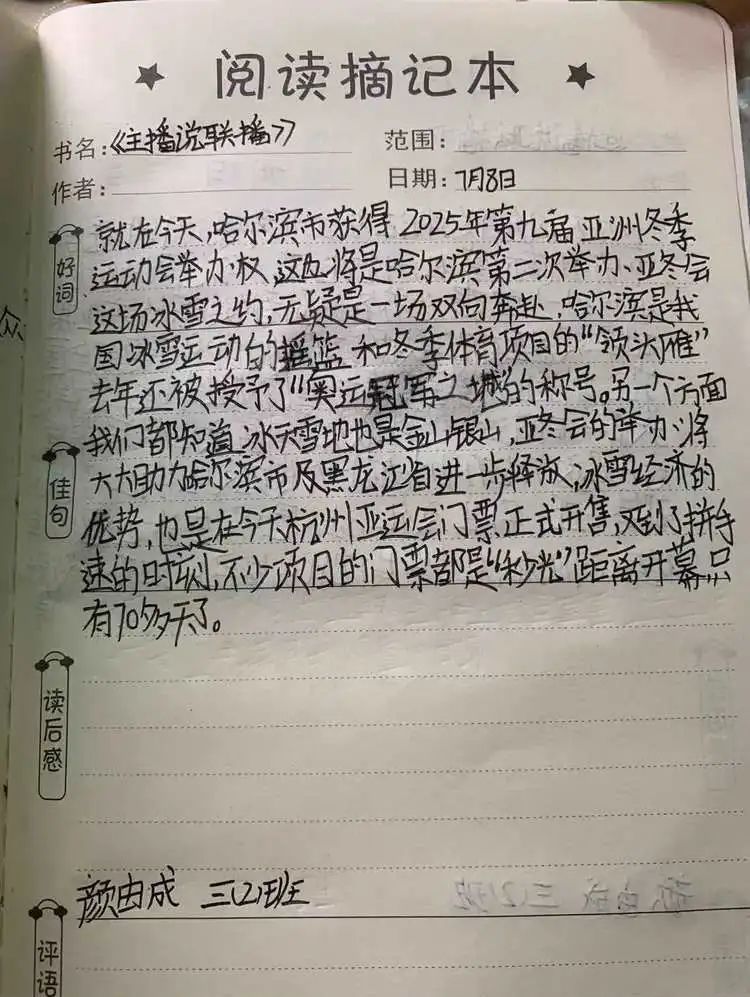 ★ 阅读摘记本 ★
书名:《主播说联播》 范围:
作者: 日期: 7月8日
好词
就在今天,哈尔滨市获得 2025年第九届亚洲冬季
运动会举办权,这也将是哈尔滨第二次举办、亚冬会
这场冰雪之约,无疑是一场双向奔赴,哈尔滨是我
国冰雪运动的摇篮和冬季体育项目的“领头雁”
去年还被授予了“奥运冠军之城”的称号。另一个方面
我们都知道冰天雪地也是金山银山,亚冬会的举办将
佳句
大大助力哈尔滨市及黑龙江省进一步释放,冰雪经济的
优势,也是在今天杭州亚运会门票正式开售,又到了拼手
速的时刻,不少项目的门票都是“秒光”距离开幕只
有70多天了。
读后感
颜由成 三(2)班
评语